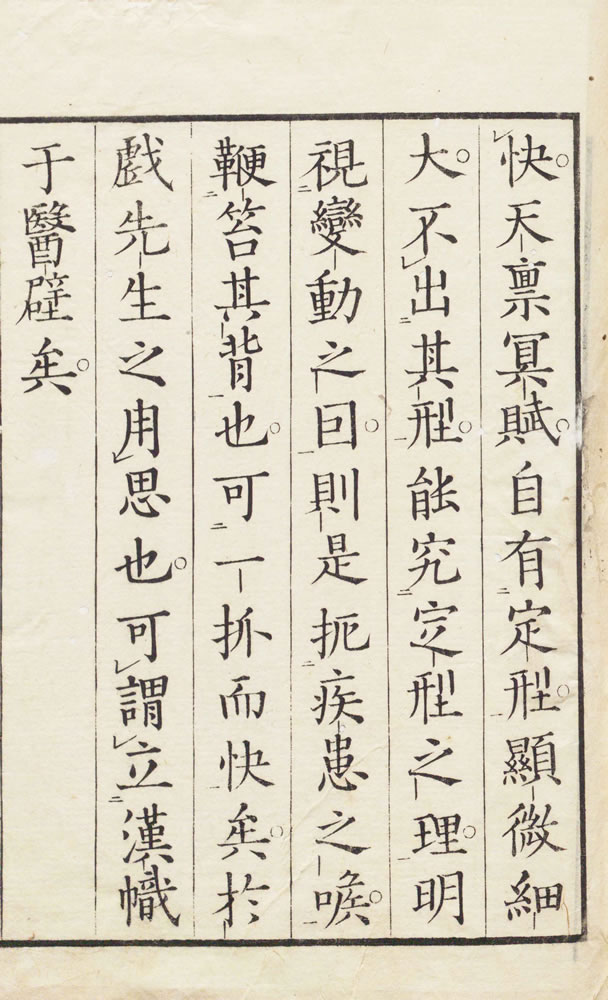 快。天禀冥賦。自有定型。顯微細
大。不出其型。能究定型之理。明
視變動之囙。則是扼疾患之喉。
鞭笞其背也。可一抓而快矣。於
戯先生之用思也。可謂立漢幟
于醫壁矣。